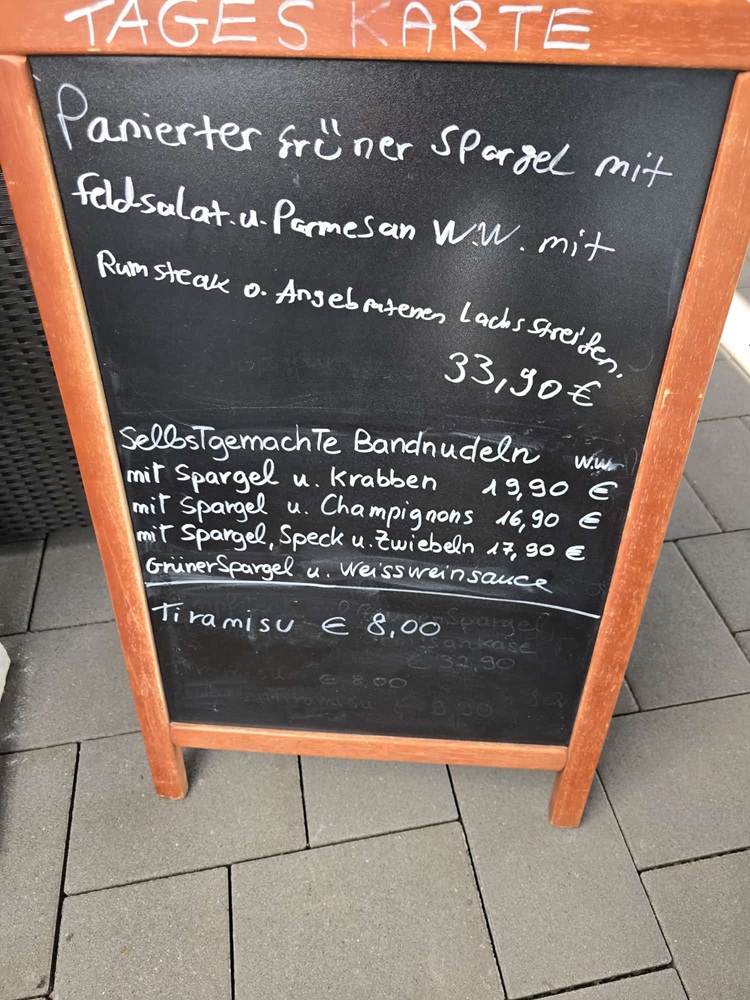 TAGES KARTE
Panierter grüner Spargel mit
Feldsalat.u.Parmesan W.W. mit
Rumsteak o. Angebratenen Lachsstreifen.
33,90€
SelbstgemachTe Bandnudeln w.w.
mit Spargel u. Krabben 19,90 €
mit Spargel u. Champignons 16,90 €
mit Spargel, Speck u. Zwiebeln 17,90 €
GrünerSpargel u. Weissweinsauce
Tiramisu € 8,00
Spargel,
32,90
€ 8,00